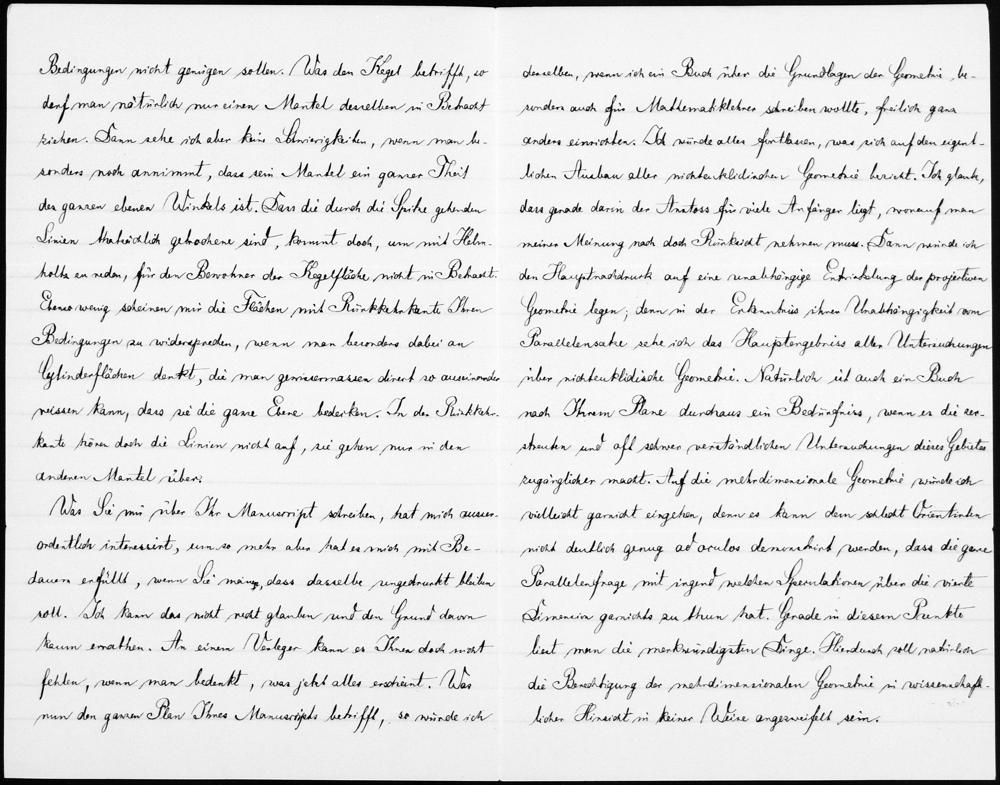 Bedingungen nicht genügen sollen. Was den Kegel betrifft, so
darf man natürlich nur einen Mantel desselben in Betracht
ziehen. Dann sehe ich aber keine Schwierigkeiten, wenn man be-
sonders noch annimmt, dass sein Mantel ein ganzer Theil
des ganzen ebenen Winkels ist. Dass die durch die Spitze gehenden
Linien thatsächlich gebrochene sind, kommt doch, um mit Helm-
holtz zu reden, für den Bewohner der Kegelfläche nicht in Betracht.
Ebenso wenig scheinen mir die Flächen mit Rückkehrkante Ihren
Bedingungen zu widersprechen, wenn man besonders dabei an
Cylinderflächen denkt, die man gewissermassen direct so auseinander
wissen kann, dass sie die ganze Ebene bedecken. In der Rückkehr-
kante hören doch die Linien nicht auf, sie gehen nur in den
anderen Mantel über.
Was Sie mir über Ihr Manuscript schreiben, hat mich ausser-
ordentlich interessirt, um so mehr aber hat es mich mit Be-
dauern erfüllt, wenn Sie meinen, dass dasselbe ungedruckt bleiben
soll. Ich kann das nicht recht glauben und den Grund davon
kaum errathen. An einem Verleger kann es Ihnen doch nicht
fehlen, wenn man bedenkt, was jetzt alles erscheint. Was
nun den ganzen Plan Ihres Manuscripts betrifft, so würde ich
denselben, wenn ich ein Buch über die Grundlagen der Geometrie, be-
sonders auch für Mathematiklehrer schreiben wollte, freilich ganz
anders einrichten. Ich würde alles fortlassen, was sich auf den eigent-
lichen Ausbau aller nichteuklidischen Geometrie bezieht. Ich glaube,
dass gerade darin der Anstoss für viele Anfänger liegt, worauf man
meiner Meinung nach doch Rücksicht nehmen muss. Dann würde ich
den Hauptnachdruck auf eine unabhängige Entwickelung der projectiven
Geometrie legen; denn in der Erkenntniss ihrer Unabhängigkeit vom
Parallelensatze sehe ich das Hauptergebniss aller Untersuchungen
über nichteuklidische Geometrie. Natürlich ist auch ein Buch
nach Ihrem Plane durchaus ein Bedürfniss, wenn es die zer-
streuten und oft schwer verständlichen Untersuchungen dieses Gebietes
zugänglicher macht. Auf die mehrdimensionale Geometrie würde ich
vielleicht garnicht eingehen, denn es kann dem schlecht Orientirten
nicht deutlich genug ad oculos demonstrirt werden, dass die ganze
Parallelenfrage mit irgend welchen Speculationen über die vierte
Dimension garnichts zu thun hat. Gerade in diesem Punkte
liest man die merkwürdigsten Dinge. Hierdurch soll natürlich
die Berechtigung der mehrdimensionalen Geometrie in wissenschaft-
licher Hinsicht in keiner Weise angezweifelt sein.